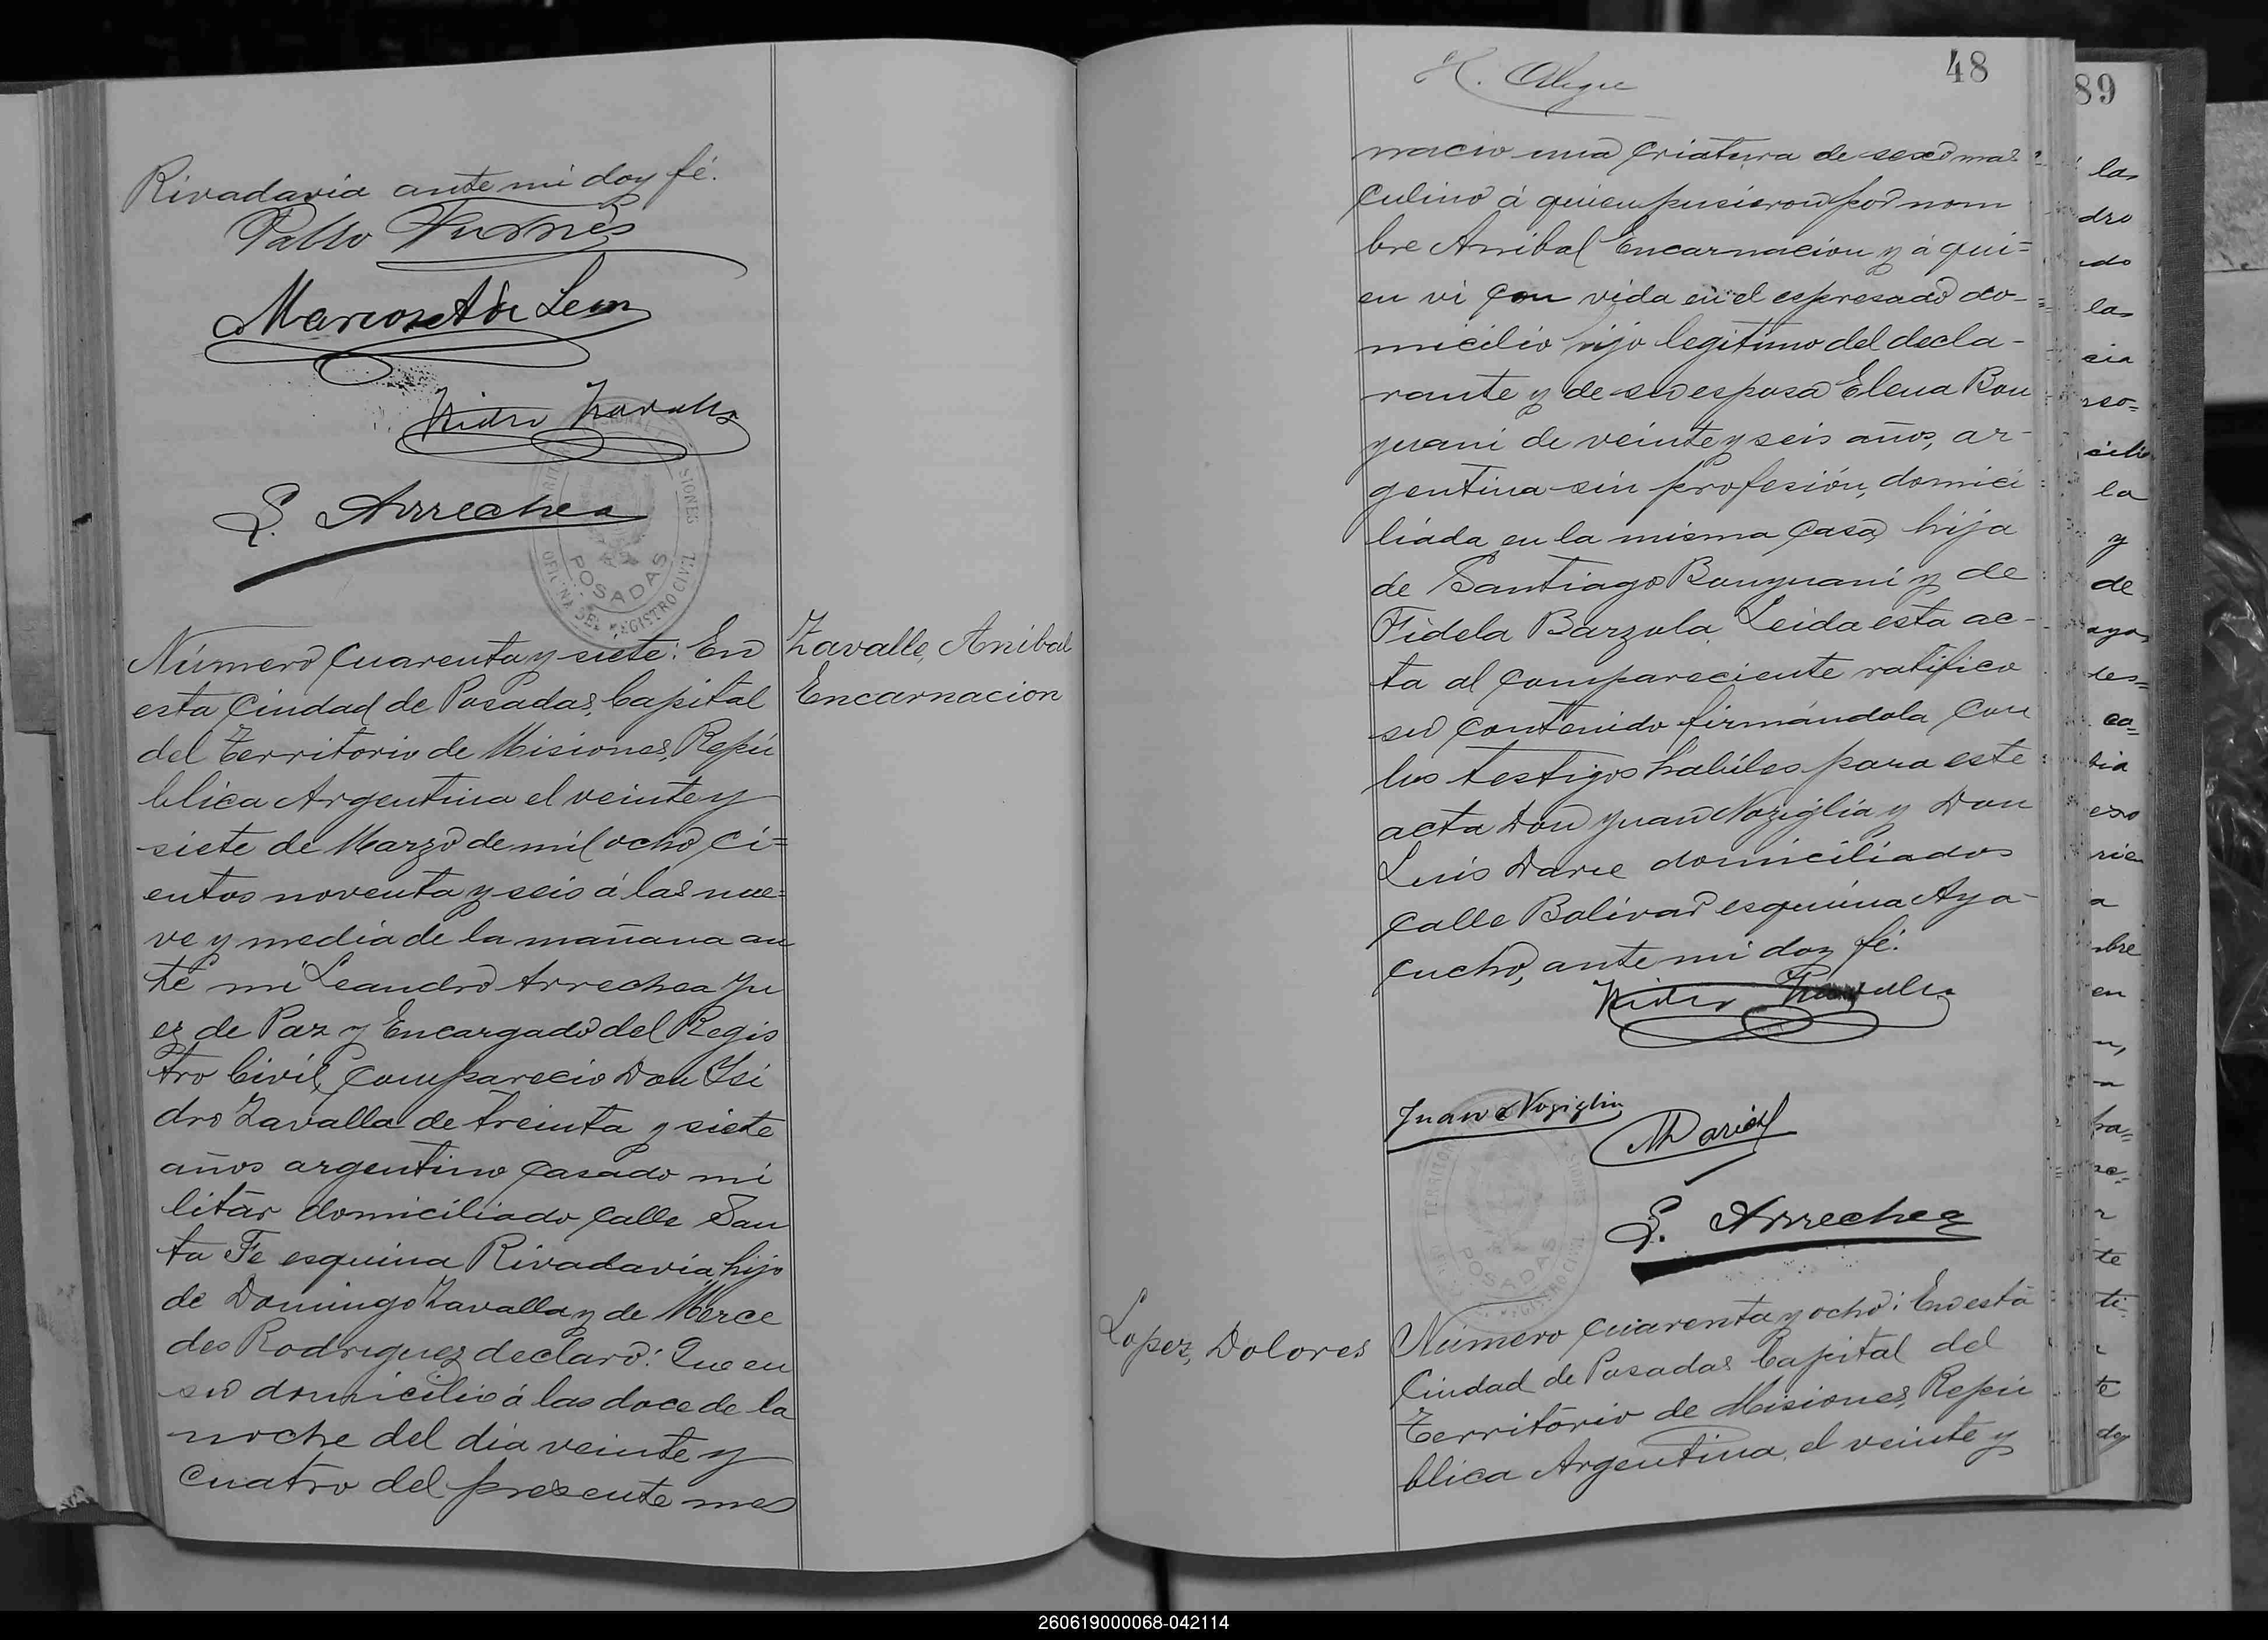 Rivadavia ante mi doy fé.
Pablo
Isidro Zavalla
L. Arrechea
OFICINA DEL REGISTRO CIVIL
POSADAS
Número Cuarenta y siete: En
esta Ciudad de Posadas, Capital
del Territorio de Misiones, Repú
blica Argentina el veinte y
siete de Marzo de mil ocho ci=
entos noventa y seis á las nue=
ve y media de la mañana an
te mi Leandro Arrechea Ju
ez de Paz y Encargado del Regis
tro Civil, Comparecio Don Isi
dro Zavalla de treinta y siete
años argentino Casado mi
litar domiciliado Calle San
ta Fé esquina Rivadavia, hijo
de Domingo Zavalla y de Merce
des Rodriguez declaró: Que en
su domicilio á las doce de la
noche del dia veinte y
cuatro del presente mes
Zavalle, Anibal
Encarnacion
H. Alegre
48
nacio una Criatura de sexo mas
culino á quien pusieron por nom
bre Anibal Encarnacion y á qui=
en vi con vida en el espresado do-
micilio hijo legitimo del decla-
rante y de su esposa Elena Bon
yuani de veinte y seis años, ar-
gentina sin profesión, domici
liada en la misma Casa, hija
de Santiago Bonyuani y de
Fidela Barzola. Leida esta ac-
ta al Compareciente ratifico
su Contenido firmándola Con
los testigos habiles para este
acta Don Juan Noziglia y Don
Luis Darie domiciliados
Calle Bolivar esquina Aya-
cucho, ante mi doy fé.
Isidro Zavalla
Juan Noziglia
L. Arrechea
POSADAS
Lopez, Dolores
Número Cuarenta y ocho: En esta
Ciudad de Posadas Capital del
Territorio de Misiones, Repú
blica Argentina, el veinte y
89
las
dro
la
y
de
260619000068-042114